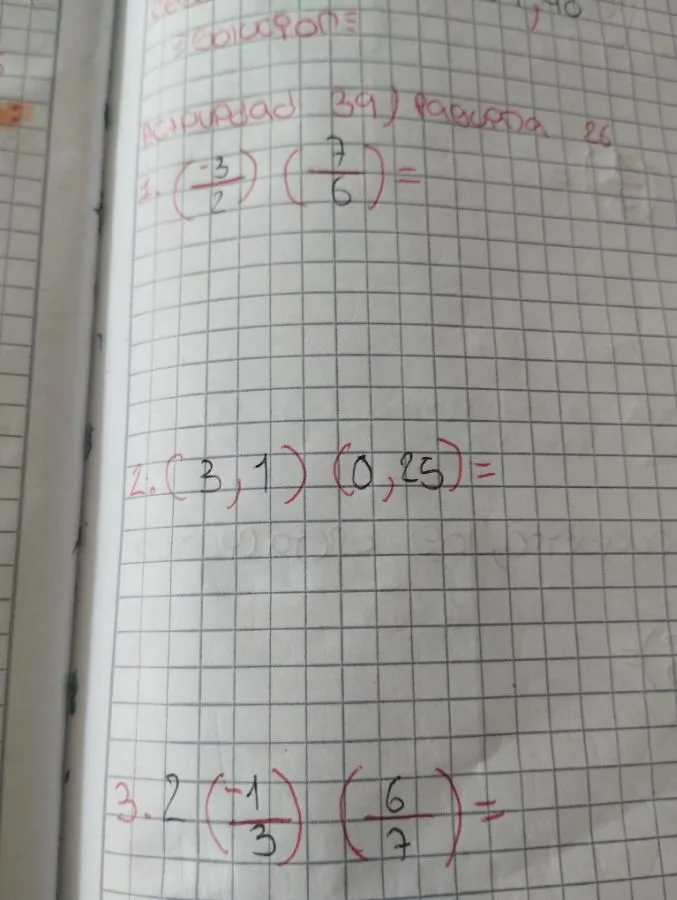 solucion=
Actividad 39) pagina 26
1. (-3/2) (7/6) =
2. (3,1) (0,25) =
3. 2 (-1/3) (6/7) =